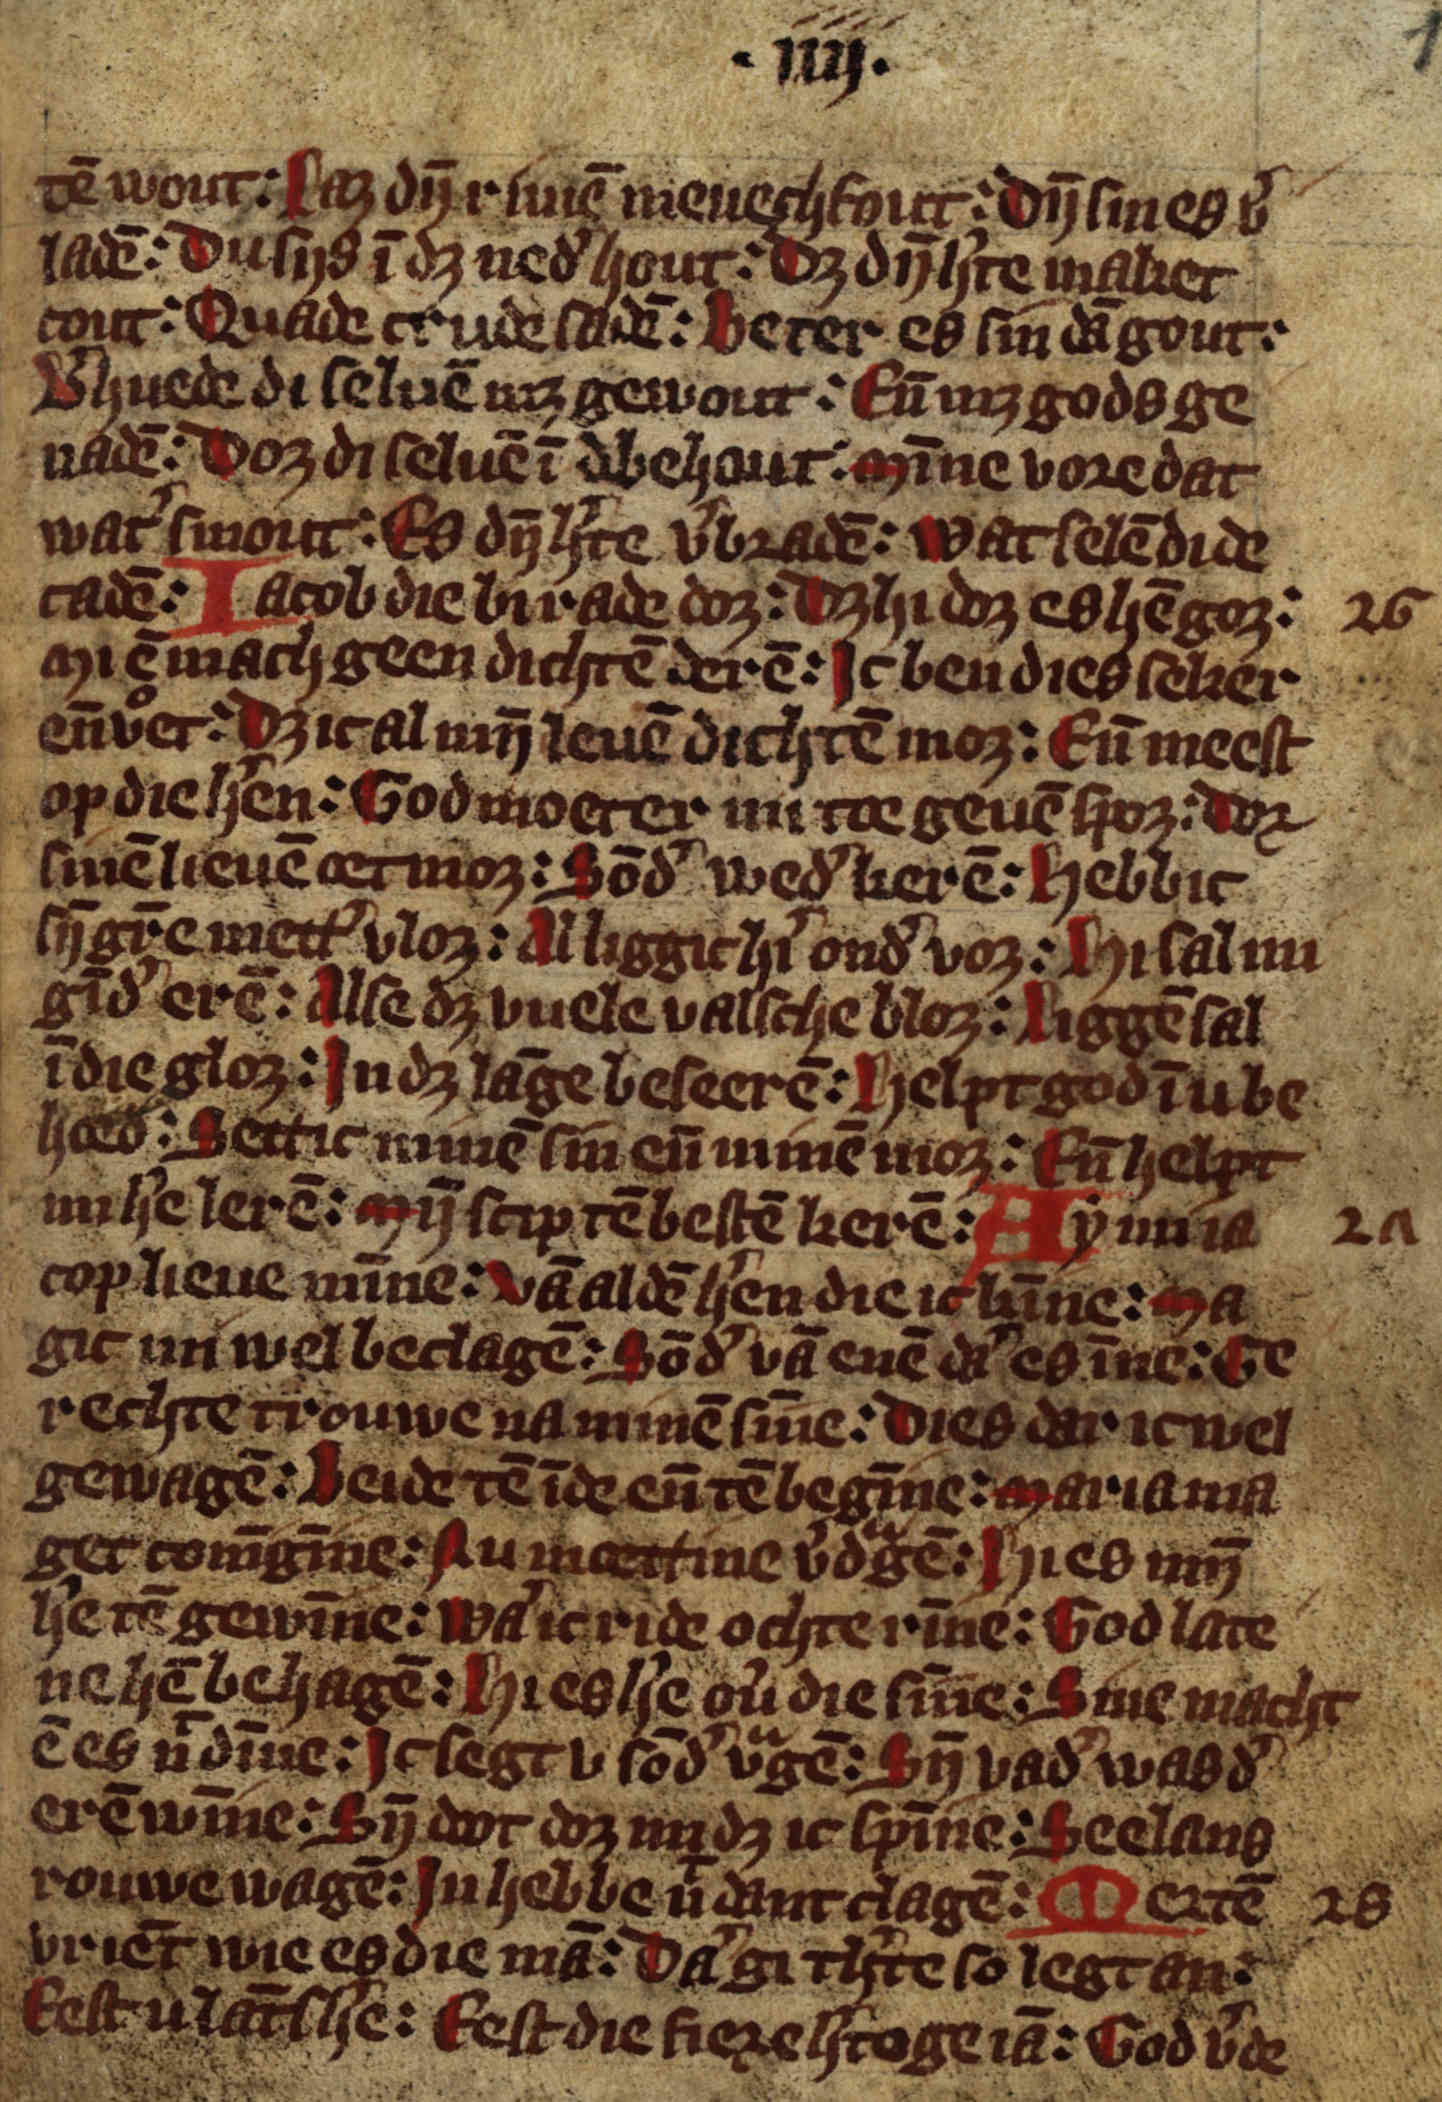 · iiij ·
tē wout : Laꝫ dȳ r sinē meuechfout : Dȳ sin es v̾
ladē : Du sijs ī dꝫ ned̾ hout : Dꝫ dȳ h̾te maket
cout : Quade crude sadē : beter es sin dā gout :
V̾huede di seluē mꝫ gewout : En̄ mꝫ gods ge
nadē : Doꝫ di seluē ī dbehout : mīne vore dat
wat̾ smout : Es dȳ h̾te v̾bradē : wat selē di de
cadē : Iacob die bi rade doꝫ : Dꝫ hi doꝫ es hē goꝫ : 26
mi ē mach geen dichtē derē : Ic ben dies seker
en̄ vͦet : Dꝫ ic al mȳ leuē dichtē moꝫ : En̄ meest
op die h̾en : God moeter mi toe geuē spoꝫ : doꝛ
sinē lieuē oetmoꝫ : Sōd̾ wed̾ kerē : Hebbic
sȳ gr̄e mett̾ vloꝫ : Al liggic hi̾ ond̾ voꝫ : Hi sal mi
gīd̾ erē : Alse dꝫ vuele valsche bloꝫ : Liggē sal
ī die gloꝫ : In dꝫ lāge beseerē : Helpt god ī u be
hoed : Settic minē sin en̄ minē moꝫ : En̄ helpt
mi h̾e lerē : mȳ scip tē bestē kerē : Ay mi ia 27
cop lieue mīne : Vā aldē h̾en die ic kīne : ma
gic mi wel beclagē : Sōd̾ vā enē da̾ es īne : Ge
rechte trouwe na minē sīne : Dies dar ic wel
gewagē : Beide tē īde en̄ tē begīne : maria ma
get com̄gīne : Nu moettine v̾dͣgē : Hi es mȳ
h̾e tē gewīne : wa̾ ic ride ochte rīne : God late
ne hē behagē : Hi es h̾e ou̾ die sīne : Sine macht
ē es n̄ dīne : Ic segt v sōd̾ vͣgē : Sȳ vad̾ was d̾
erē wīne : Sȳ doot doꝫ mi dꝫ ic spīne : Seelans
rouwe wagē : In hebbe n̄ dant clagē : Mertē 28
vriēt wie es die mā : Da̾ gi th̾te so legt an :
Eest u lāts h̾e : Eest die fiere h̾toge iā : God v̾de